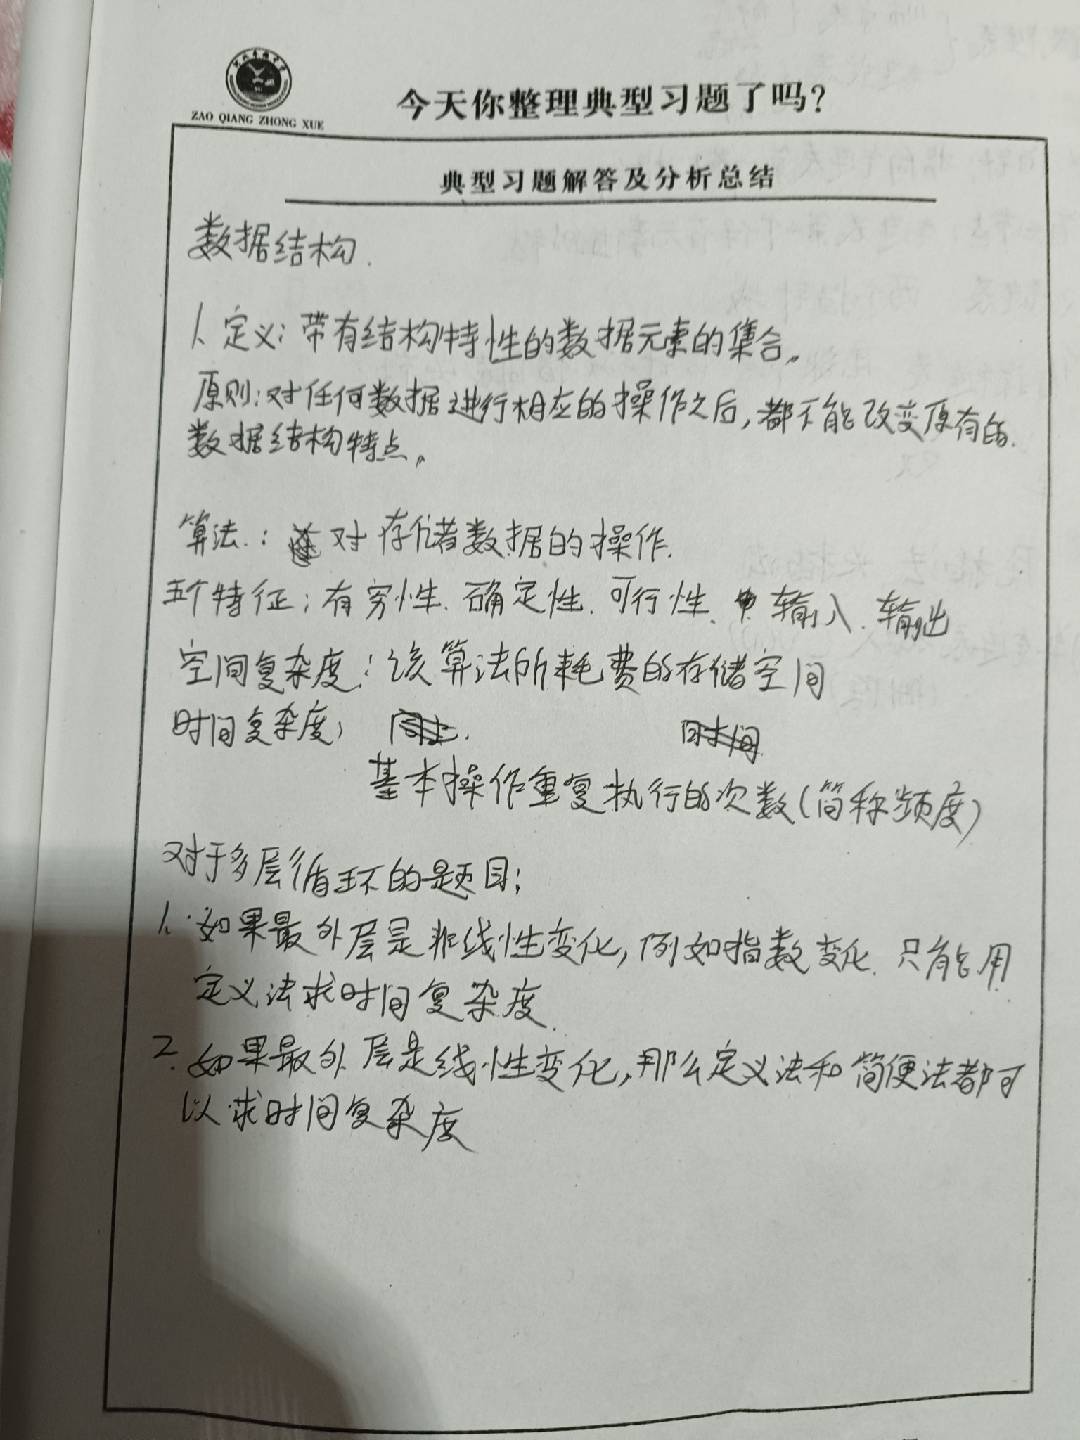 ZAO QIANG ZHONG XUE
今天你整理典型习题了吗?
典型习题解答及分析总结
数据结构.
1. 定义: 带有结构特性的数据元素的集合。
原则: 对任何数据进行相应的操作之后, 都不能改变原有的
数据结构特点。
算法.: 对存储数据的操作.
五个特征: 有穷性、确定性、可行性、输入、输出
空间复杂度: 该算法所耗费的存储空间
时间复杂度:
基本操作重复执行的次数(简称频度)
对于多层循环的题目:
1. 如果最外层是非线性变化, 例如指数变化. 只能用
定义法求时间复杂度.
2. 如果最外层是线性变化, 那么定义法和简便法都可
以求时间复杂度